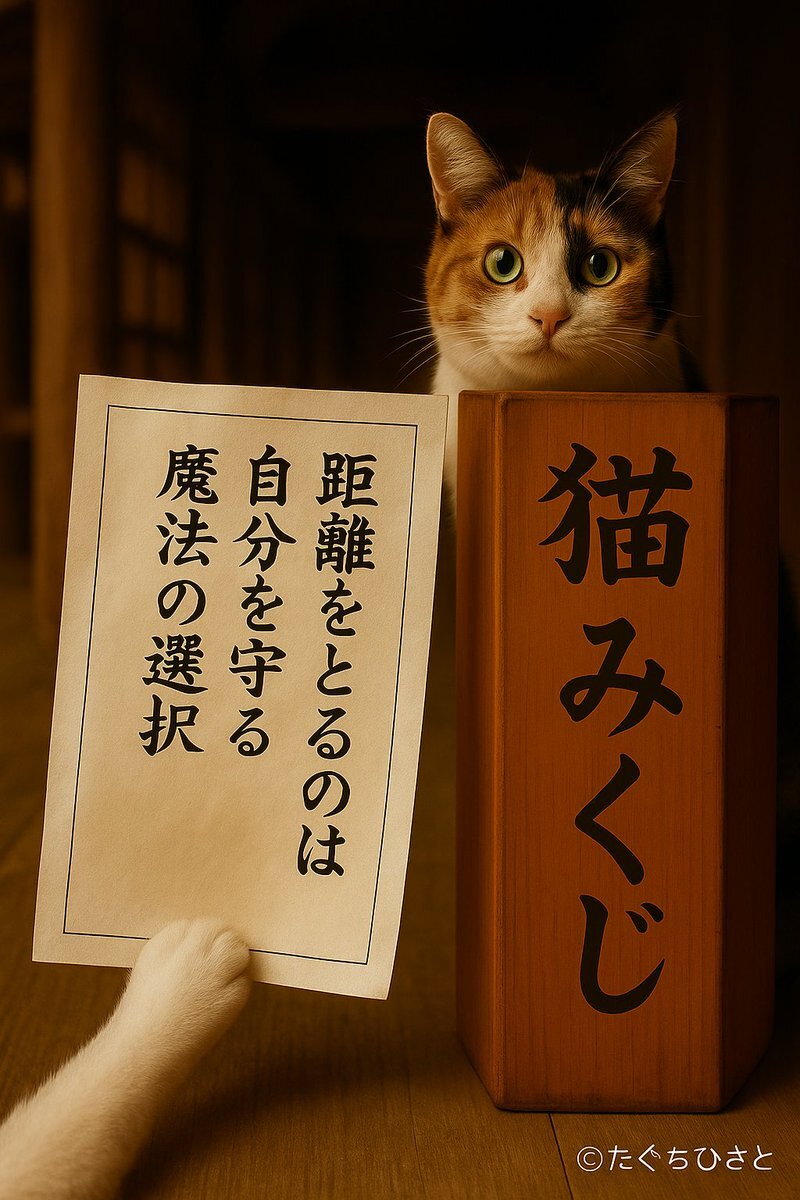 距離をとるのは
自分を守る
魔法の選択
猫みくじ
©たぐちひさと